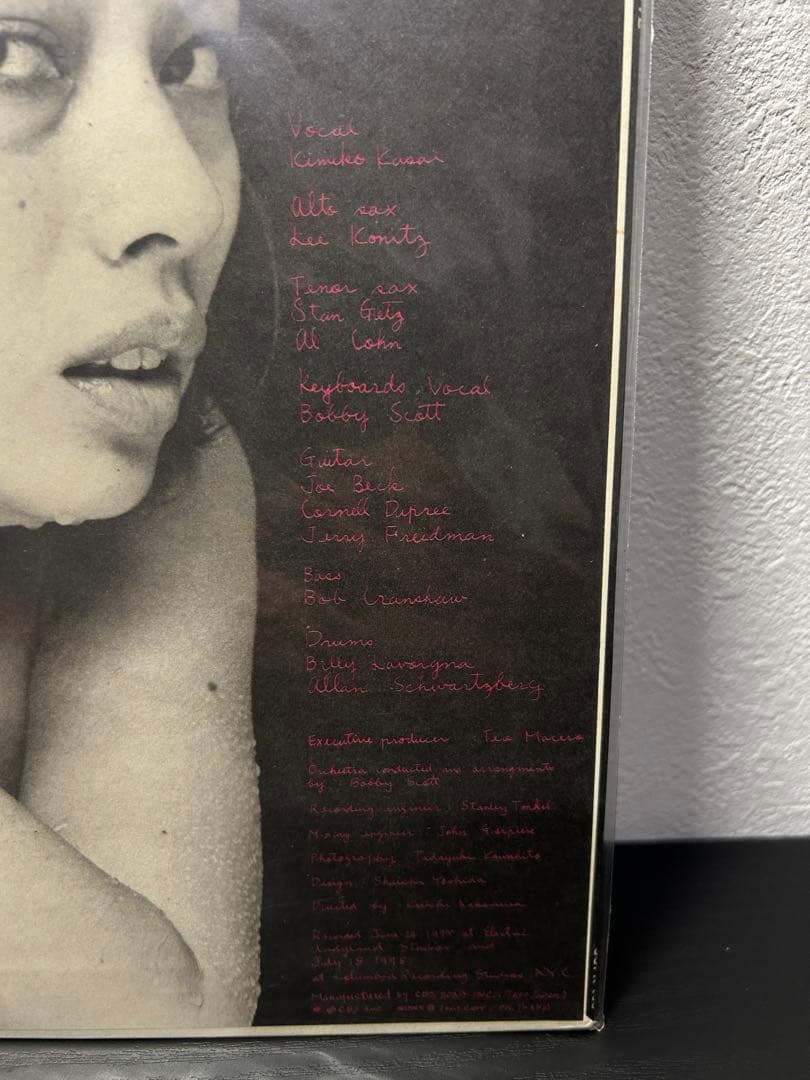 Vocal
Kimiko Kasai
Alto sax
Lee Konitz
Tenor sax
Stan Getz
Al Cohn
Keyboards, Vocal
Bobby Scott
Guitar
Joe Beck
Cornell Dupree
Jerry Freidman
Bass
Bob Cranshaw
Drums
Billy Lavorgna
Allan Schwartzberg
Executive producer Teo Macero
Orchestra conducted and arrangements
by Bobby Scott
Recording engineer: Stanley Tonkel
Mixing engineer John
Photography Tadayuki Kawahito
Design Shuichi Yoshida
Directed by
Recorded June at Electric
Ladyland Studios and
July 18 1978
at Columbia Recording Studios N.Y.C
Manufactured by CBS SONY INC.